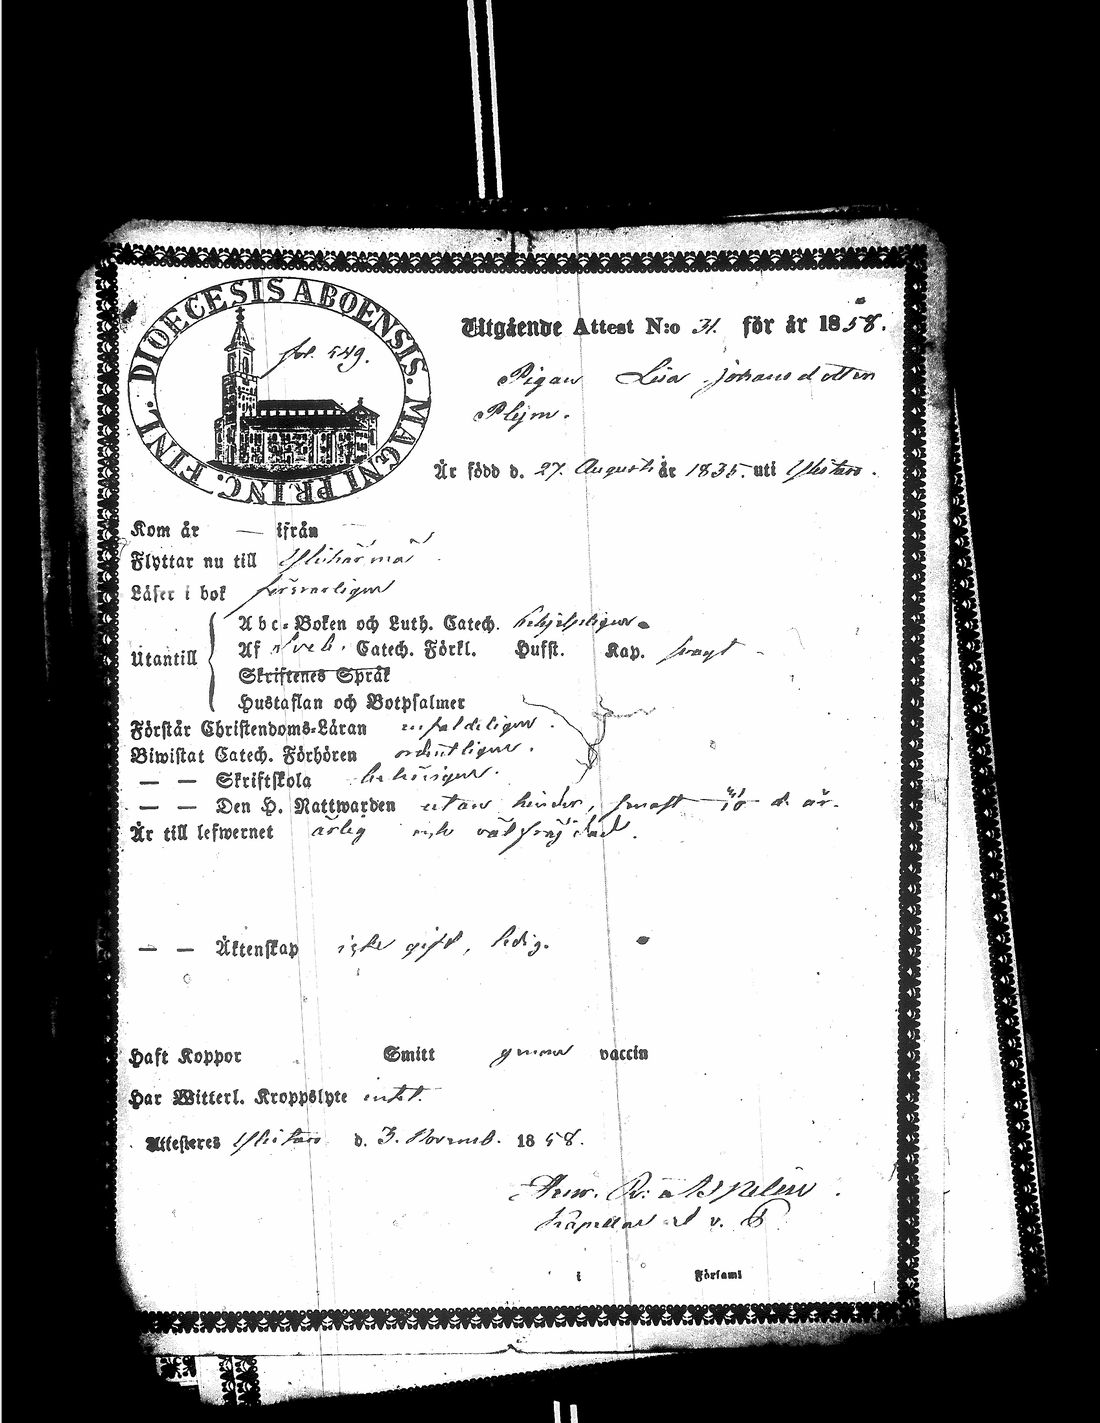 DIOECESIS ABOENSIS. MAGNI PRINC. FINL.
fol. 549.
Utgående Attest N:o 31. för år 1858.
Pigan Lisa Johansdotter
Plym.
Är född d. 27. Augusti år 1835. uti Ylistaro.
Kom år — ifrån —
Flyttar nu till Ylihärmä
Läser i bok försvarligen
Utantill
Abc-Boken och Luth. Catech. behjelpligen
Af Sveb. Catech. Förkl. Hufst. Kap. svagt
Skriftenes Språk
Hustaflan och Botpsalmer
Förstår Christendoms-Läran enfaldeligen.
Biwistat Catech. Förhören ordentligen.
— — Skriftskola behörigen.
— — Den H. Nattwarden utan hinder, senast d. år.
Är till lefwernet ärlig och välfräjdad.
— — Äktenskap icke gift, ledig.
Haft Koppor Smitt genom vaccin
Har Witterl. Kroppslyte intet.
Attesteras Ylistaro d. 3. Novemb. 1858.
Kapellan
i Församl